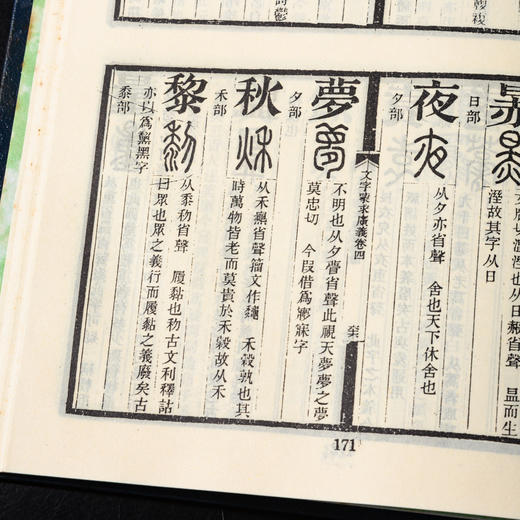 日部
溼故其字从日
夜
夕部
从夕亦省聲 舍也天下休舍也
文字蒙求廣義卷四
夢
夕部
不明也从夕瞢省聲此視天夢夢之夢
莫忠切 今叚借爲㝱寐字
秋
禾部
省聲籀文作 禾穀孰也其
時萬物皆老而莫貴於禾穀故从禾
黎
黍部
从黍省聲 履黏也古文利釋詁
曰眾也眾之義行而履黏之義廢矣古
亦以爲黧黑字
171